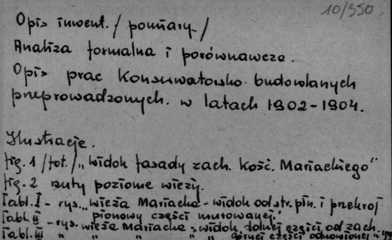 10/350
Opis inwent. /pomiary./
Analiza formalna i porównawcza.
Opis prac konserwatorsko. budowlanych
przeprowadzonych. w latach 1902-1904.
Ilustracje.
fig. 1 /fot./ „Widok fasady zach. Kość. Mariackiego"
fig. 2 rzuty poziome wieży.
Tabl. I - rys. „Wieża Mariacka - widok od str. płn. i przekrój
pionowy części murowanej."
Tabl. II - rys. „Wieża Mariacka - widok dolnej części od zach.
" " " " górnej części odnowionej"